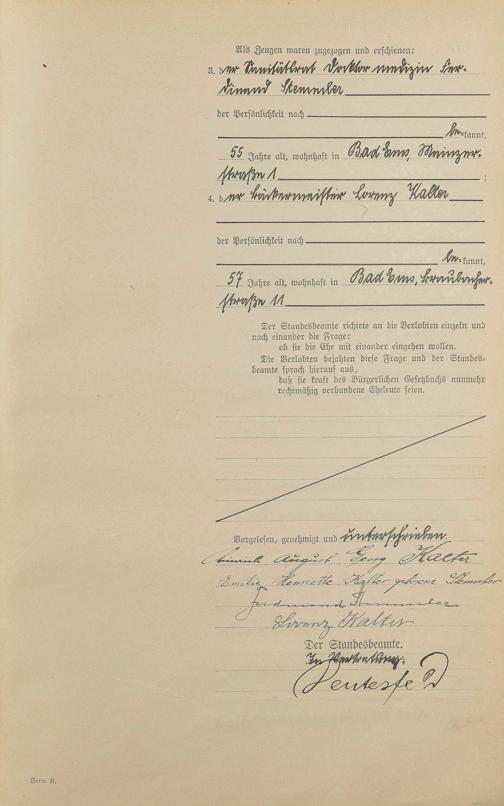 Als Zeugen waren zugezogen und erschienen:
3. der Sanitätsrat Doktor medizin Fer-
dinand Stemmler
der Persönlichkeit nach
be-kannt,
55 Jahre alt, wohnhaft in Bad Ems, Mainzer-
straße 1 ;
4. der Bäckermeister Lorenz Kalter
der Persönlichkeit nach
be-kannt,
57 Jahre alt, wohnhaft in Bad Ems, Braubacher-
straße 11
Der Standesbeamte richtete an die Verlobten einzeln und
nach einander die Frage:
ob sie die Ehe mit einander eingehen wollen.
Die Verlobten bejahten diese Frage und der Standes-
beamte sprach hierauf aus,
daß sie kraft des Bürgerlichen Gesetzbuchs nunmehr
rechtmäßig verbundene Eheleute seien.
Vorgelesen, genehmigt und unterschrieben
Heinrich August Georg Kalter
Emilie Henriette Kalter geborene Stemmler
Ferdinand Stemmler
Lorenz Kalter
Der Standesbeamte.
In Vertretung:
Form. B.